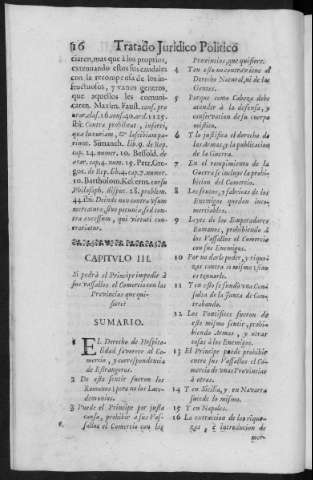 16 Tratado Juridico Politico
ciaren, mas que à los proprios,
extenuando estos sus caudales
con la recompensa de los in-
fructuosos, y vanos generos,
que aquellos les comuni-
caren. Maxim. Faust.
Ibi: Contra prohibitas, inferri,
que luxuriam, & lascibiam pa-
riunt. Simanch. lib. 9. de Rep.
cap. 24. numer. 10. Bessold. de
ærar. cap. 4. num. 15. Petr. Gre-
gor. de Rep. lib. 4. cap. 7. numer.
10. Bartholom. Kekerm. curs
Philosoph. disput. 18. problem.
44. ibi: Deinde non contra usum
mercaturæ, sive pecuniæ, sed con-
tra excessum, qui virtuti con-
trariatur.
CAPITVLO III.
Si podrá el Principe impedir à
sus vassallos el Comercio con las
Provincias que qui-
siere?
SUMARIO.
1 EL Derecho de Hospita-
lidad favorece al Co-
mercio, y correspondencia
de Estrangeros.
2 De este sentir fueron los
Romanos; pero no los Lace-
demonios.
3 Puede el Principe por justa
causa, prohibir à sus Vas-
sallos el Comercio con las
Provincias, que quisiere.
4 Y en esto no contraviene al
Derecho Natural, ni de las
Gentes.
5 Porque como Cabeza debe
atender à la defensa, y
conservacion de su cuerpo
mistico.
6 Y lo justifica el derecho de
las Armas, y la publicacion
de la Guerra.
7 En el rompimiento de la
Guerra se incluye la prohi-
bicion del Comercio.
8 Los frutos, y fabricas de los
Enemigos quedan inco-
merciables.
9 Leyes de los Emperadores
Romanos, prohibiendo à
los Vassallos el Comercio
con sus Enemigos.
10 Por no darle poder, y rique-
zas contra si mismo; sino
extenuarle.
11 Y en esto se funda una Con-
sulta de la Junta de Con-
trabando.
12 Los Pontifices fueron de
este mismo sentir, prohi-
biendo Armas, y otras
cosas à los Enemigos.
13 El Principe puede prohibir
entre sus Vassallos el Co-
mercio de unas Provincias
à otras.
14 Y en Sicilia, y en Navarra
sucede lo mismo.
15 Y en Napoles.
16 La extraccion de las rique-
zas, è introduccion de